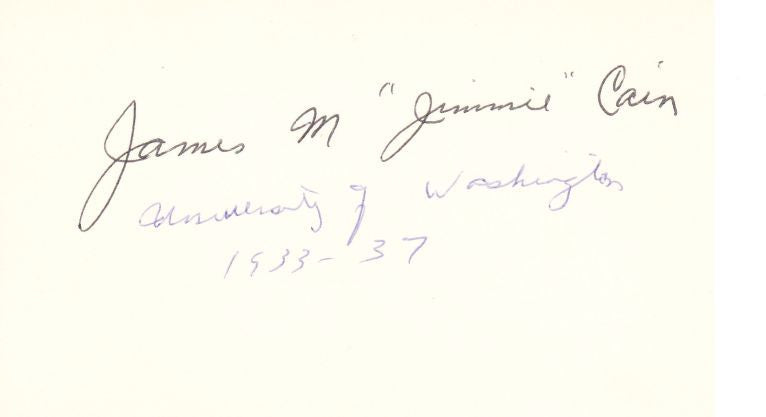 James M "Jimmie" Cain
University of Washington
1933-37